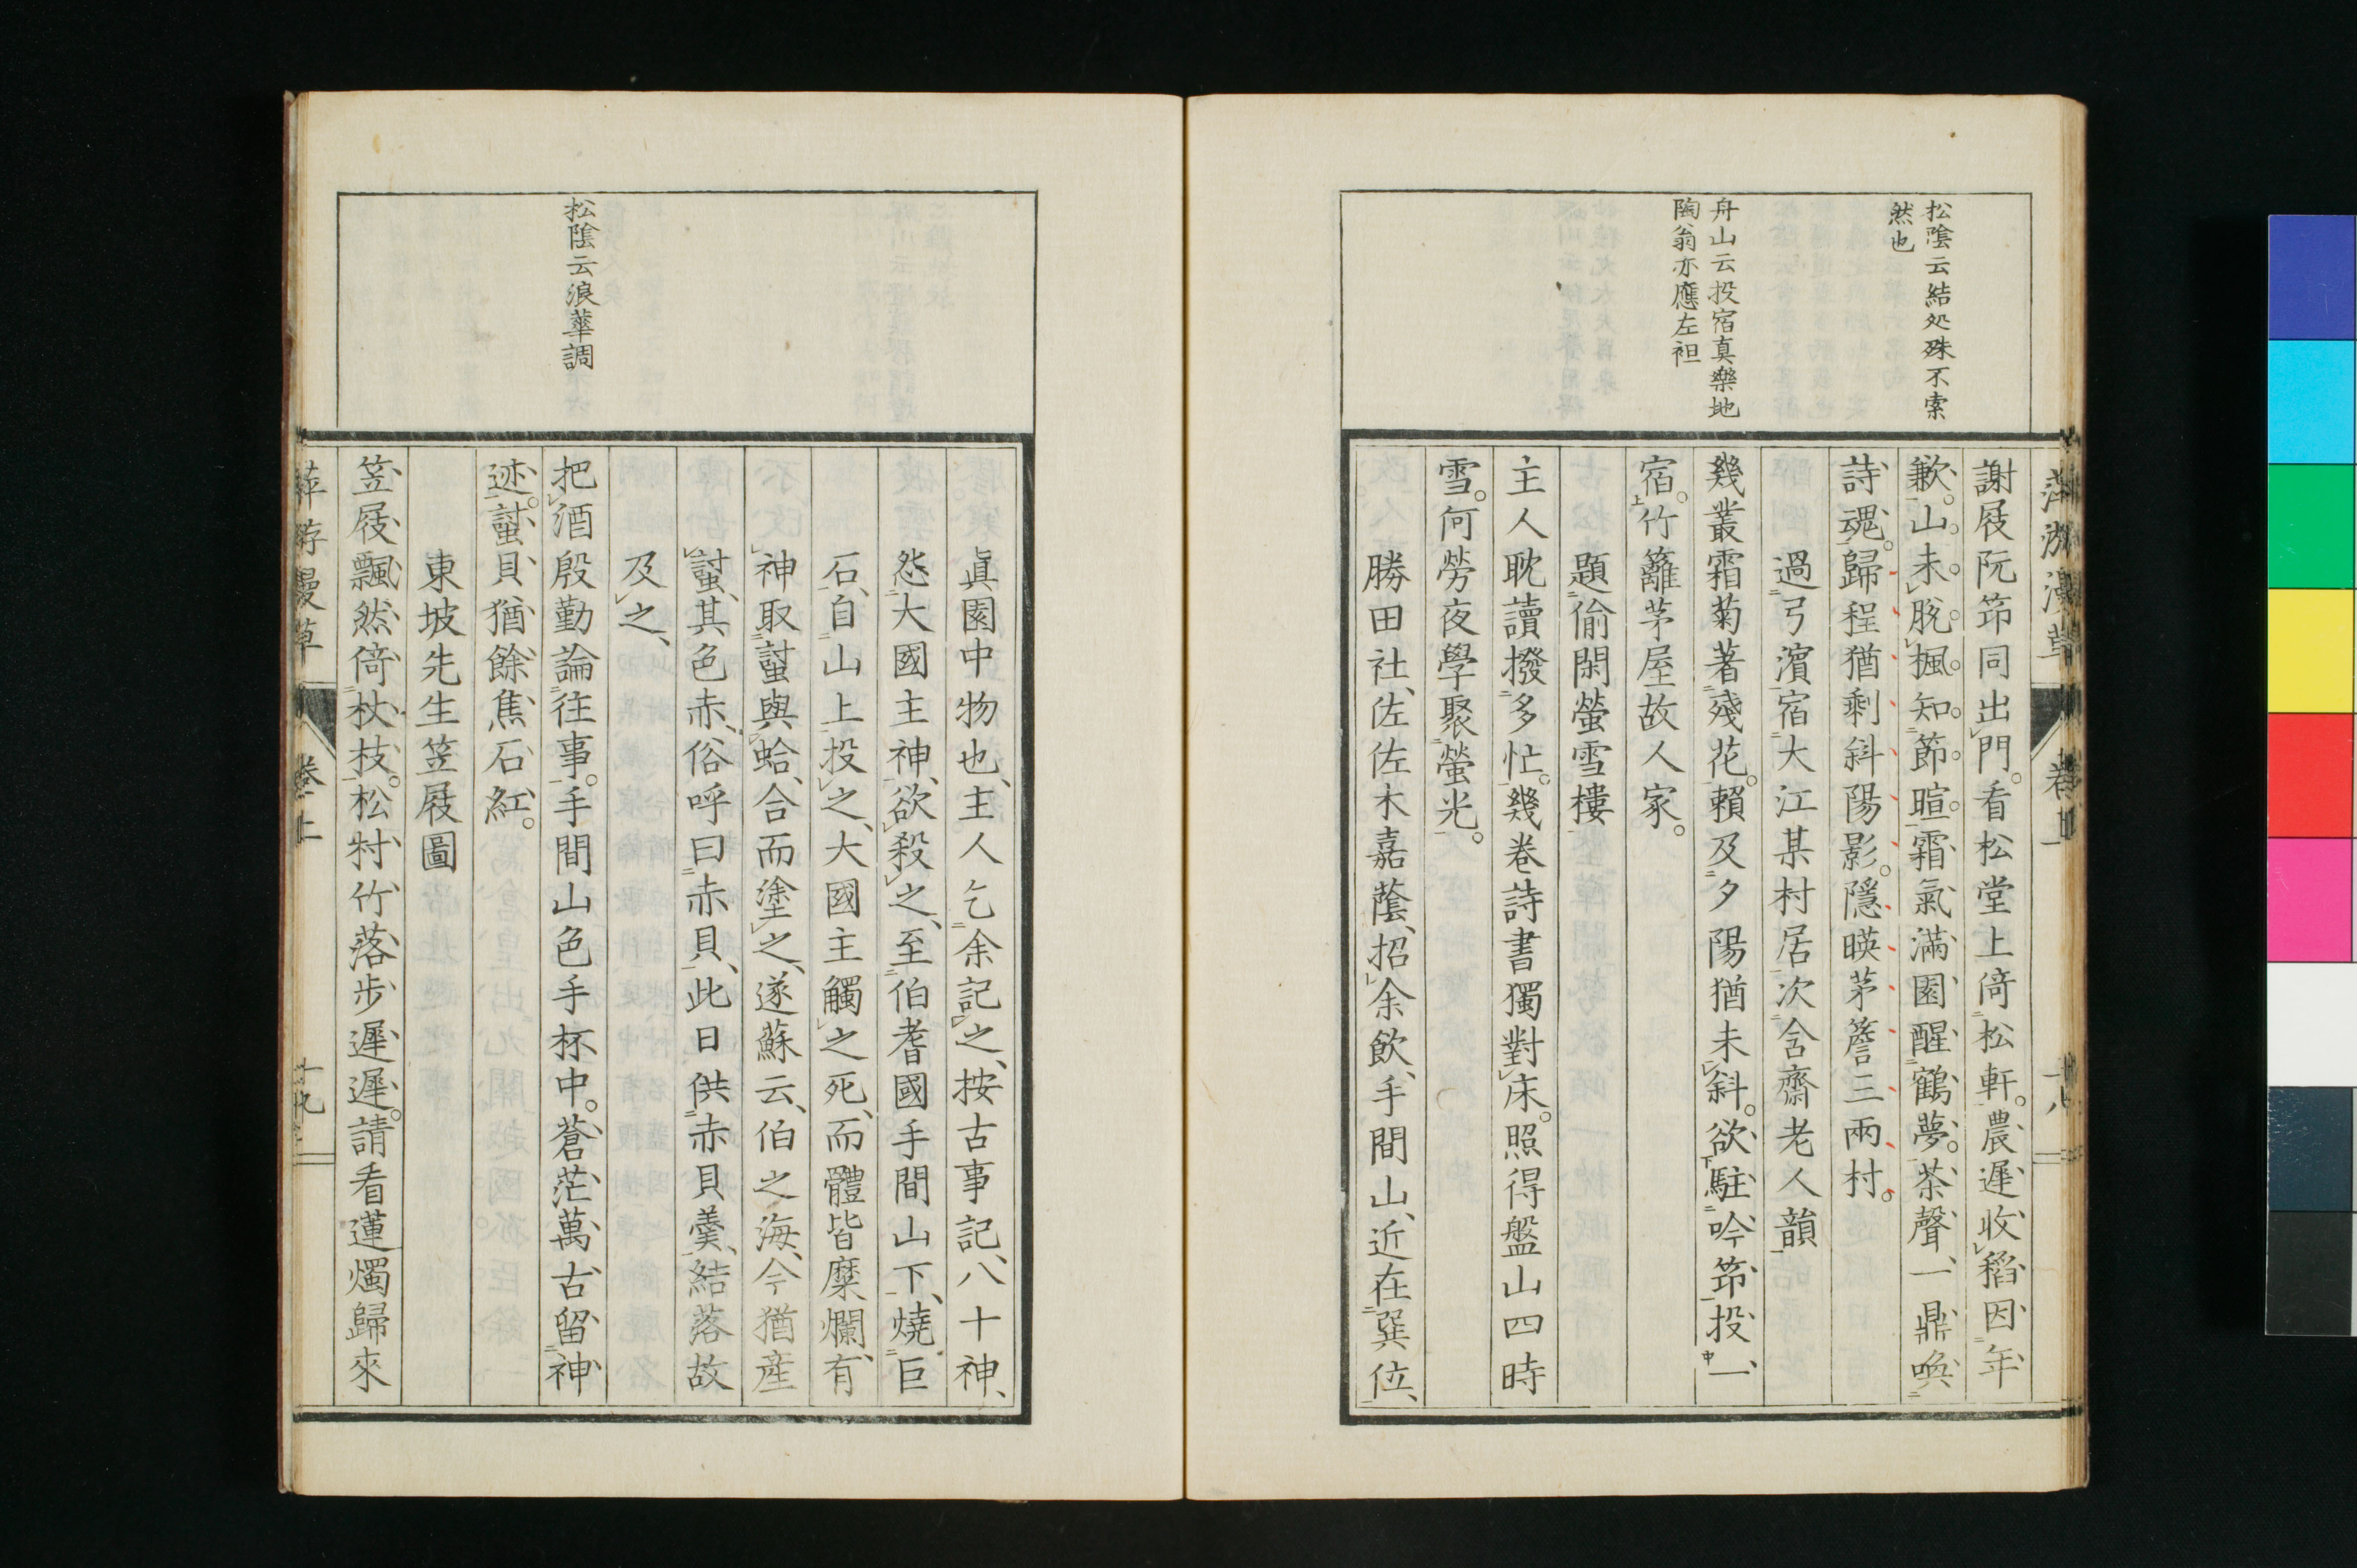 萍游漫草
卷上
十八
松陰云結処殊不索
然也
舟山云投宿真樂地
陶翁亦應左袒
謝屐阮笻同出門。看松堂上倚松軒。農遲收稻因年
歉。山未脫楓知節暄。霜氣滿園醒鶴夢。茶聲一鼎喚
詩魂。歸程猶剩斜陽影。隱暎茅簷三兩村。
過弓濱宿大江某村居次含齋老人韻
幾叢霜菊著殘花。賴及夕陽猶未斜。欲駐吟笻投一
宿。竹籬茅屋故人家。
題偷閑螢雪樓
主人耽讀撥多忙。幾卷詩書獨對床。照得盤山四時
雪。何勞夜學聚螢光。
勝田社、佐佐木嘉蔭、招余飲、手間山、近在巽位、
眞園中物也、主人乞余記之、按古事記、八十神、
怨大國主神、欲殺之、至伯耆國手間山下、燒巨
石、自山上投之、大國主觸之死、而體皆糜爛、有
神取蟚與蛤、合而塗之、遂蘇云、伯之海、今猶産
蟚、其色赤、俗呼曰赤貝、此日供赤貝羹、結落故
及之、
把酒殷勤論往事。手間山色手杯中。蒼茫萬古留神
迹。蟚貝猶餘焦石紅。
東坡先生笠屐圖
笠屐飄然倚杖枝。松村竹落步遲遲。請看蓮燭歸來
松陰云浪華調
萍游漫草
卷上
十九